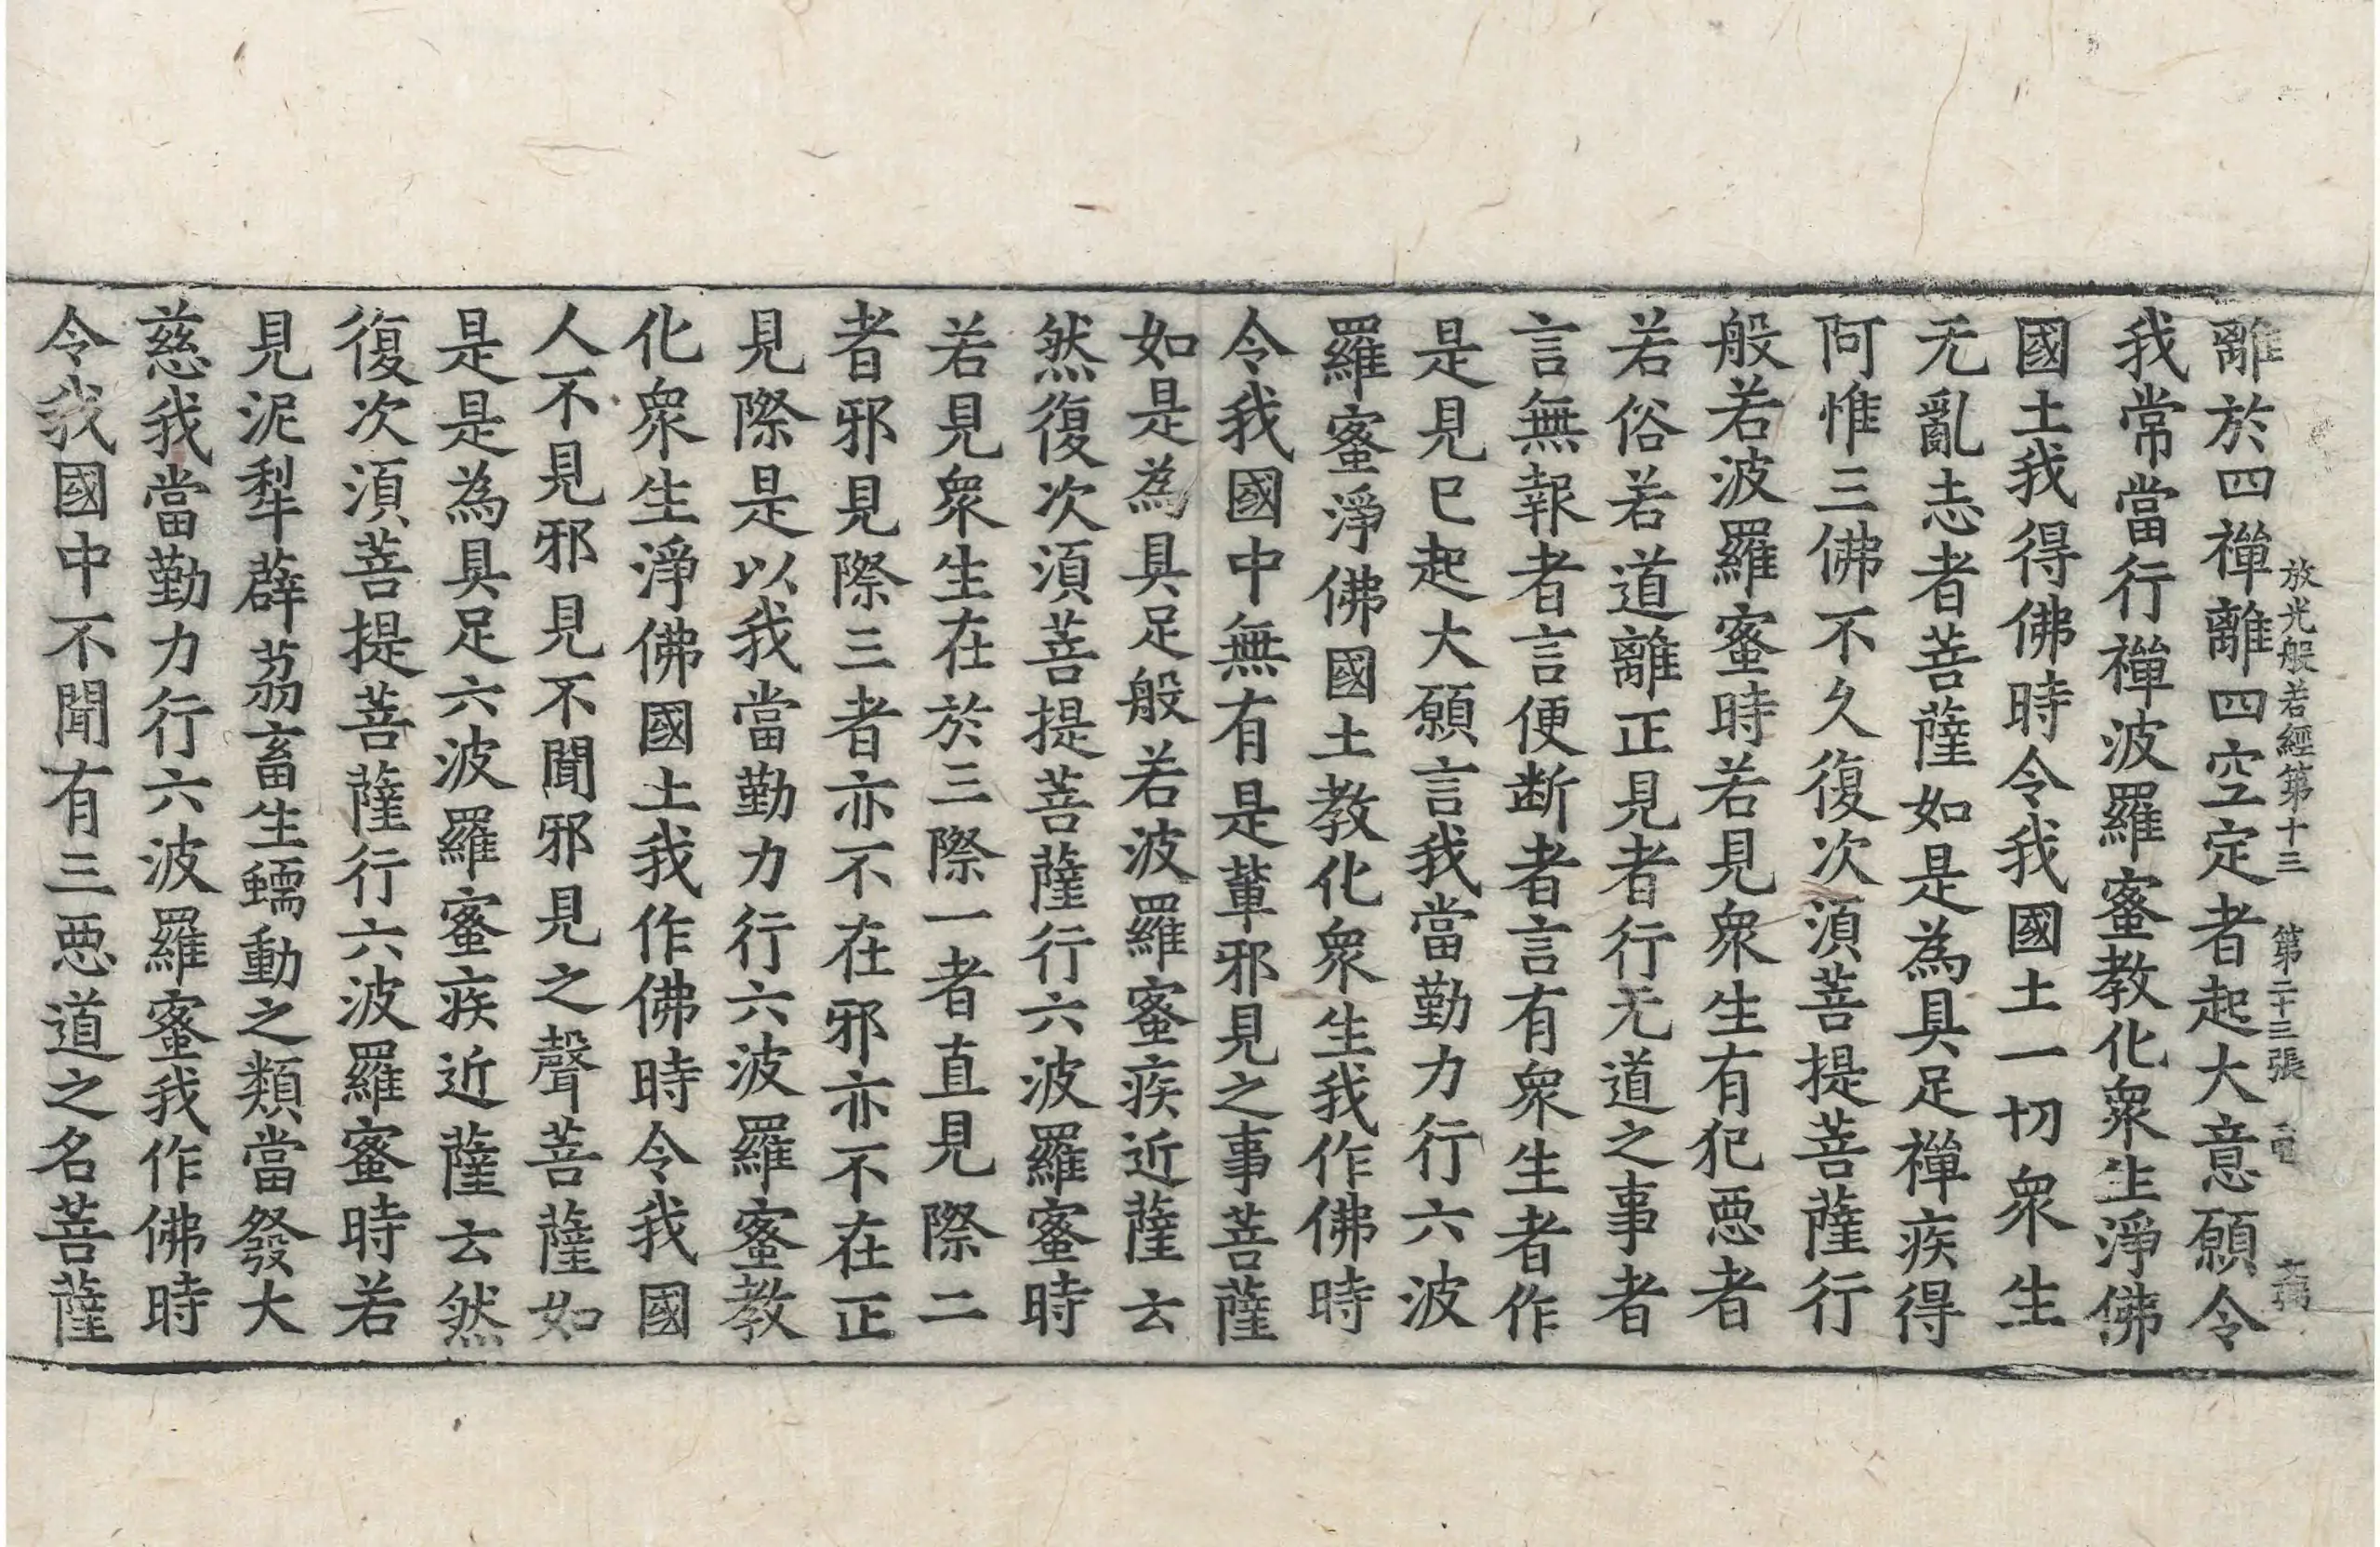 放光般若經第十三 第二十三張
離於四禪離四空定者起大意願令
我常當行禪波羅蜜教化衆生淨佛
國土我得佛時令我國土一切衆生
无亂志者菩薩如是為具足禪疾得
阿惟三佛不久復次須菩提菩薩行
般若波羅蜜時若見衆生有犯悪者
若俗若道離正見者行无道之事者
言無報者言便断者言有衆生者作
是見已起大願言我當勤力行六波
羅蜜淨佛國土教化衆生我作佛時
令我國中無有是軰邪見之事菩薩
如是為具足般若波羅蜜疾近薩云
然復次須菩提菩薩行六波羅蜜時
若見衆生在於三際一者直見際二
者邪見際三者亦不在邪亦不在正
見際是以我當勤力行六波羅蜜教
化衆生淨佛國土我作佛時令我國
人不見邪見不聞邪見之聲菩薩如
是是為具足六波羅蜜疾近薩云然
復次須菩提菩薩行六波羅蜜時若
見泥犁薜荔畜生蠕動之類當發大
慈我當勤力行六波羅蜜我作佛時
令我國中不聞有三悪道之名菩薩